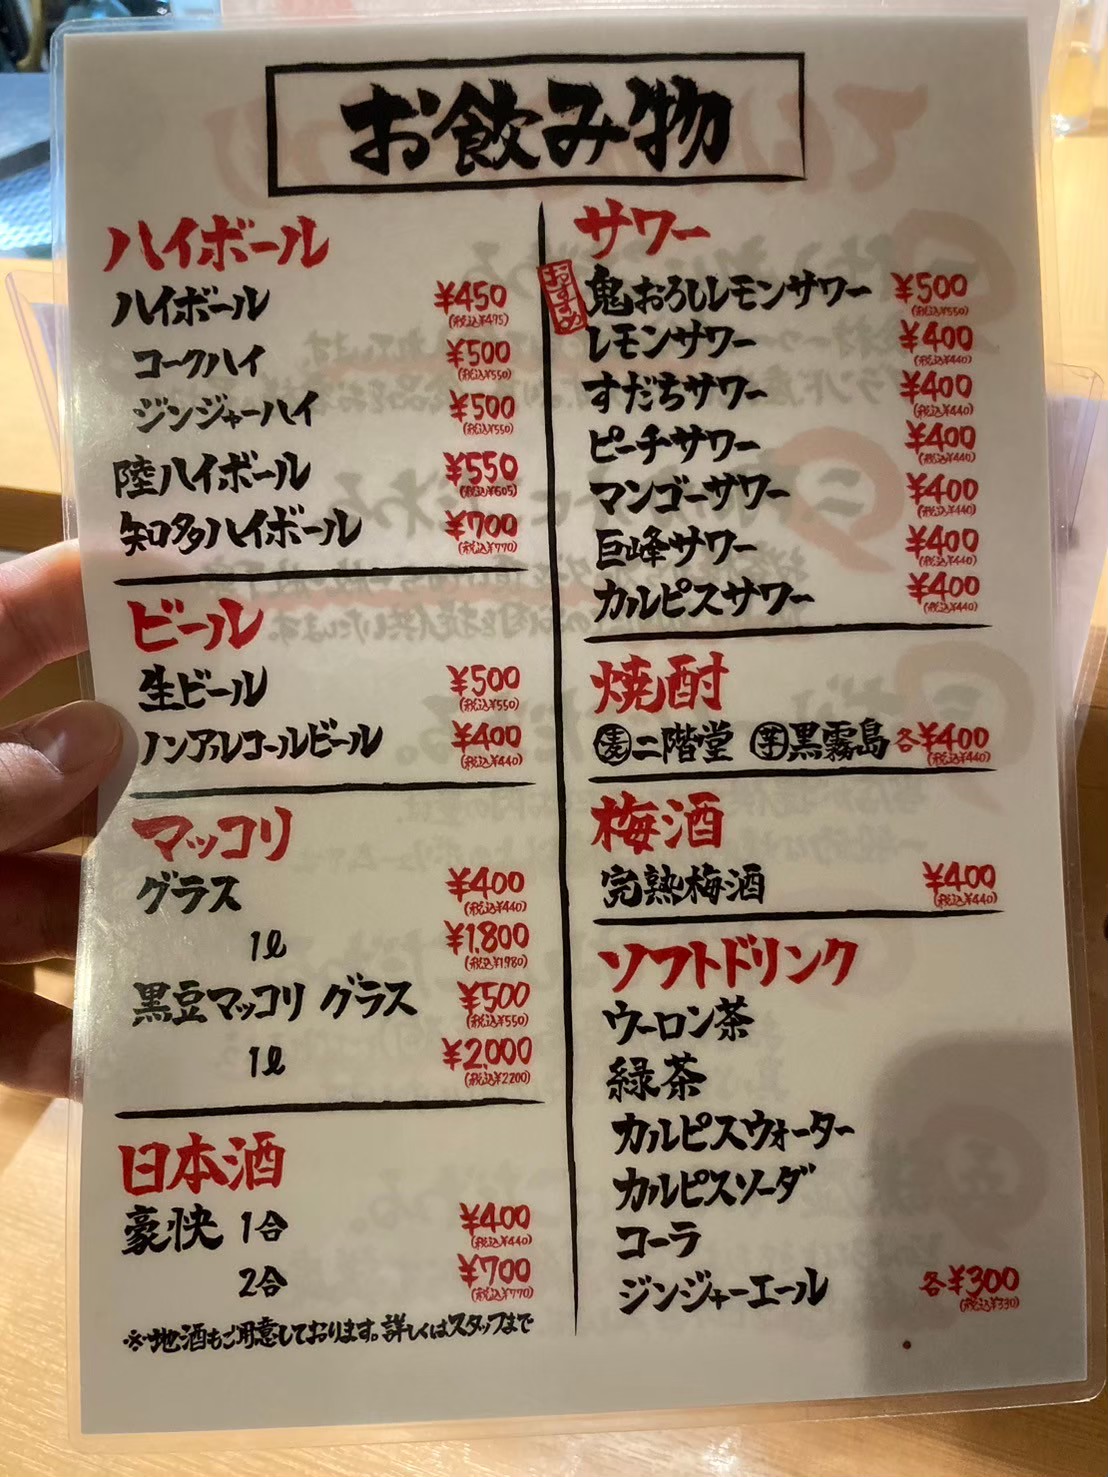 お飲み物
ハイボール
ハイボール ¥450
(税込¥495)
コークハイ ¥500
(税込¥550)
ジンジャーハイ ¥500
(税込¥550)
陸ハイボール ¥550
(税込¥605)
知多ハイボール ¥700
(税込¥770)
ビール
生ビール ¥500
(税込¥550)
ノンアルコールビール ¥400
(税込¥440)
マッコリ
グラス ¥400
(税込¥440)
1ℓ ¥1,800
(税込¥1980)
黒豆マッコリ グラス ¥500
(税込¥550)
1ℓ ¥2,000
(税込¥2200)
日本酒
豪快 1合 ¥400
(税込¥440)
2合 ¥700
(税込¥770)
※地酒もご用意しております。詳しくはスタッフまで
サワー
おすすめ
鬼おろしレモンサワー ¥500
(税込¥550)
レモンサワー ¥400
(税込¥440)
すだちサワー ¥400
(税込¥440)
ピーチサワー ¥400
(税込¥440)
マンゴーサワー ¥400
(税込¥440)
巨峰サワー ¥400
(税込¥440)
カルピスサワー ¥400
(税込¥440)
焼酎
麦二階堂 芋黒霧島 各¥400
(税込¥440)
梅酒
完熟梅酒 ¥400
(税込¥440)
ソフトドリンク
ウーロン茶
緑茶
カルピスウォーター
カルピスソーダ
コーラ
ジンジャーエール 各¥300
(税込¥330)